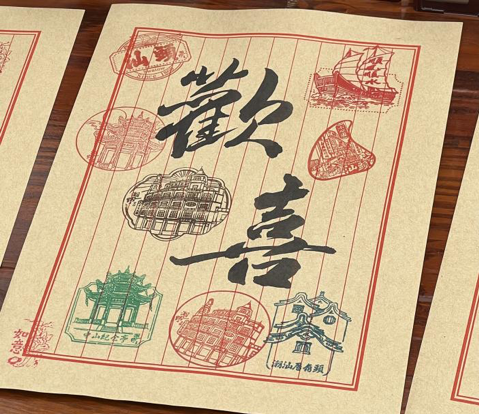 汕頭
歡
喜
中山紀念亭
潮汕厝角頭
如意